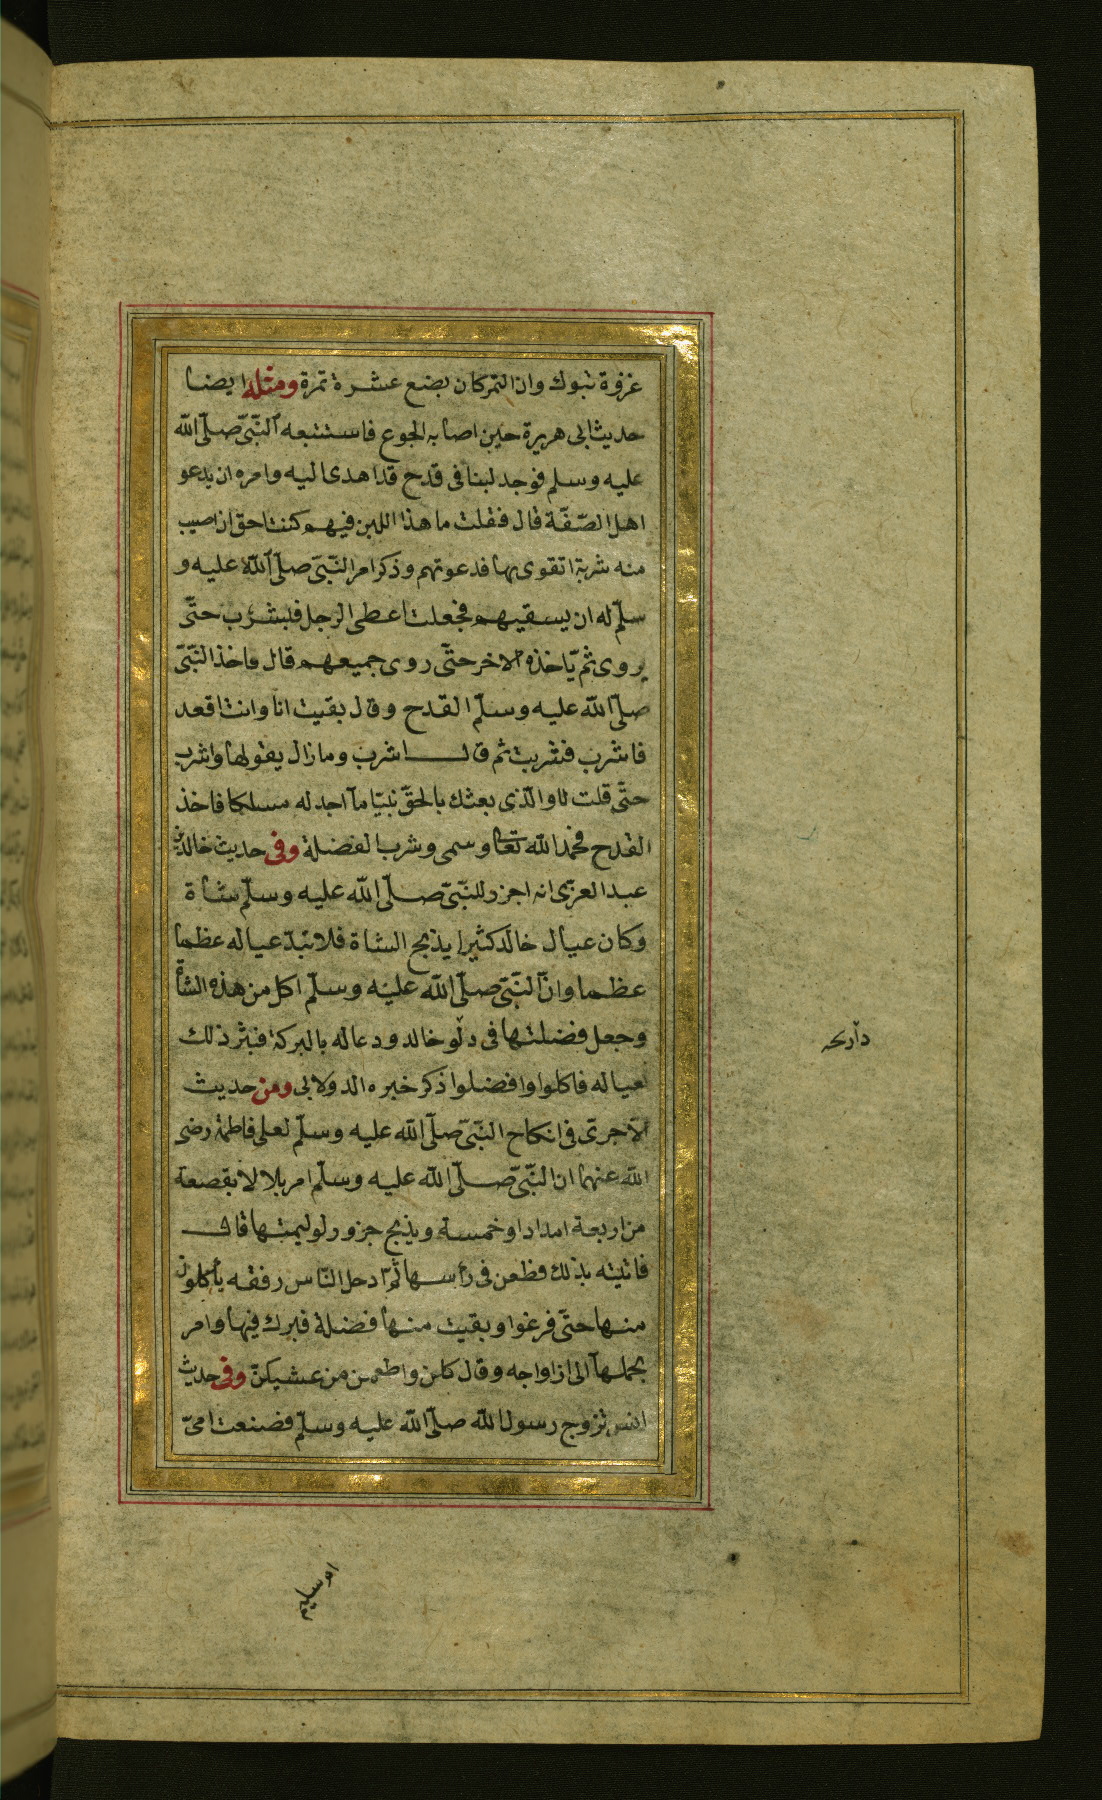 غزوة تبوك وان التمر كان بضع عشرة تمرة ومثله ايضا
حديث ابى هريرة حين اصابه الجوع فاستتبعه النّبىّ صلّى الله
عليه وسلم فوجد لبنا فى قدح قد اهدى اليه وامره ان يدعو
اهل الصّفّة قال فقلت ما هذا اللبن فيهم كنت احق ان اصيب
منه شربة اتقوى بها فدعوتهم وذكر امر النّبىّ صلّى الله عليه و
سلّم له ان يسقيهم فجعلت اعطى الرجل فيشرب حتّى
يروى ثمّ ياخذه الاخر حتّى روى جميعهم قال فاخذ النّبىّ
صلّى الله عليه وسلّم القدح وقال بقيت انا وانت اقعد
فاشرب فشربت ثم قال اشرب وما زال يقولها واشرب
حتّى قلت لا والّذى بعثك بالحقّ نبيّا ما اجد له مسلكا فاخذ
القدح فحمد الله تعا وسمى وشرب الفضلة وفى حديث خالد بن
عبد العزّى انه اجزر للنّبىّ صلّى الله عليه وسلّم شاة
وكان عيال خالد كثيرا يذبح الشاة فلا تبدّ عياله عظما
عظما وانّ النّبىّ صلّى الله عليه وسلّم اكل من هذه الشاة
وجعل فضلتها فى دلو خالد ودعا له بالبركة فنثر ذلك
لعياله فاكلوا وافضلوا ذكر خبره الدولابى ومن حديث
الآجرىّ فى انكاح النّبىّ صلّى الله عليه وسلّم لعلى فاطمة رضى
الله عنهما ان النّبىّ صلّى الله عليه وسلّم امر بلالا بقصعة
من اربعة امداد او خمسة ويذبح جزور لوليمتها قال
فاتيته بذلك فطعن فى رأسها ثمّ ادخل النّاس رفقه يأكلون
منها حتّى فرغوا وبقيت منها فضلة فبرك فيها وامر
بحملها الى ازاواجه وقال كلن واطعمن من عشيكنّ وفى حديث
انس تزوج رسول الله صلّى الله عليه وسلّم فصنعت امىّ
ام سليم